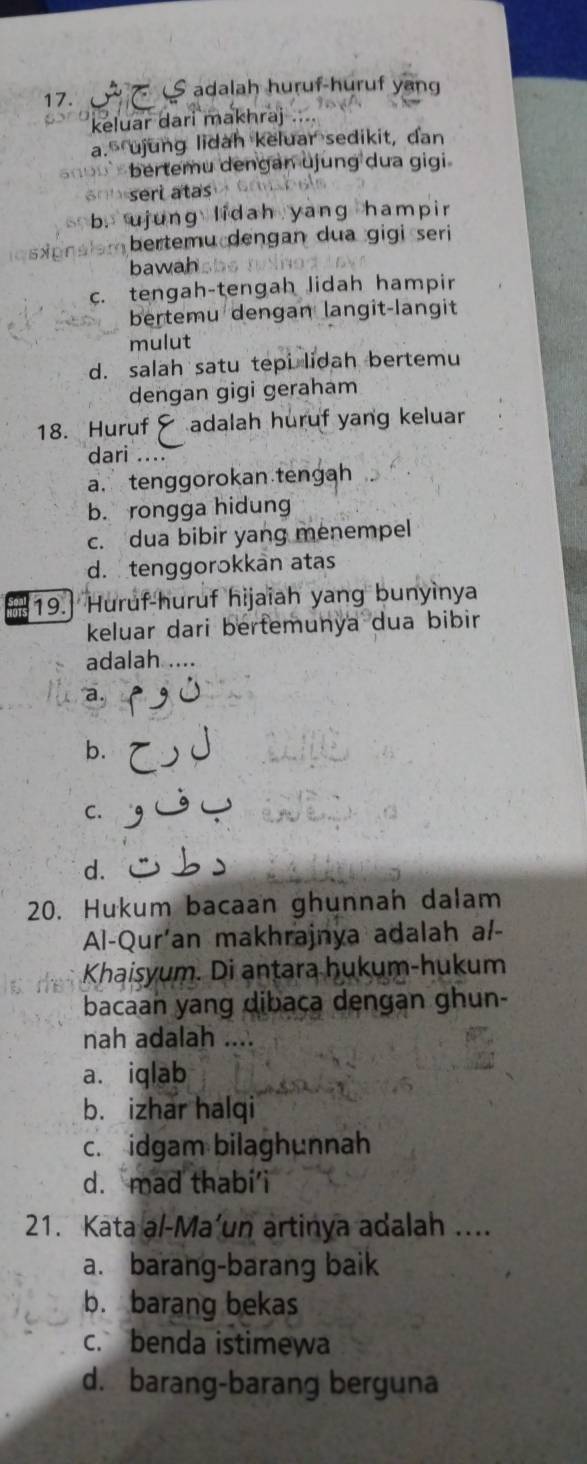 17. ش ج ي adalah huruf-huruf yang
keluar dari makhraj ....
a. ujung lidah keluar sedikit, dan
bertemu dengan ujung dua gigi
seri atas
b. ujung lidah yang hampir
bertemu dengan dua gigi seri
bawah
c. tengah-tengah lidah hampir
bertemu dengan langit-langit
mulut
d. salah satu tepi lidah bertemu
dengan gigi geraham
18. Huruf ع adalah huruf yang keluar
dari ....
a. tenggorokan tengah
b. rongga hidung
c. dua bibir yang menempel
d. tenggorokkan atas
Soal HOTS 19. Huruf-huruf hijaiah yang bunyinya
keluar dari bertemunya dua bibir
adalah ....
a. م و ن
b. ح ر ل
c. و ف ب
d. ت ط د
20. Hukum bacaan ghunnah dalam
Al-Qur'an makhrajnya adalah al-
Khaisyum. Di antara hukum-hukum
bacaan yang dibaca dengan ghun-
nah adalah ....
a. iqlab
b. izhar halqi
c. idgam bilaghunnah
d. mad thabi'i
21. Kata al-Ma'un artinya adalah ....
a. barang-barang baik
b. barang bekas
c. benda istimewa
d. barang-barang berguna